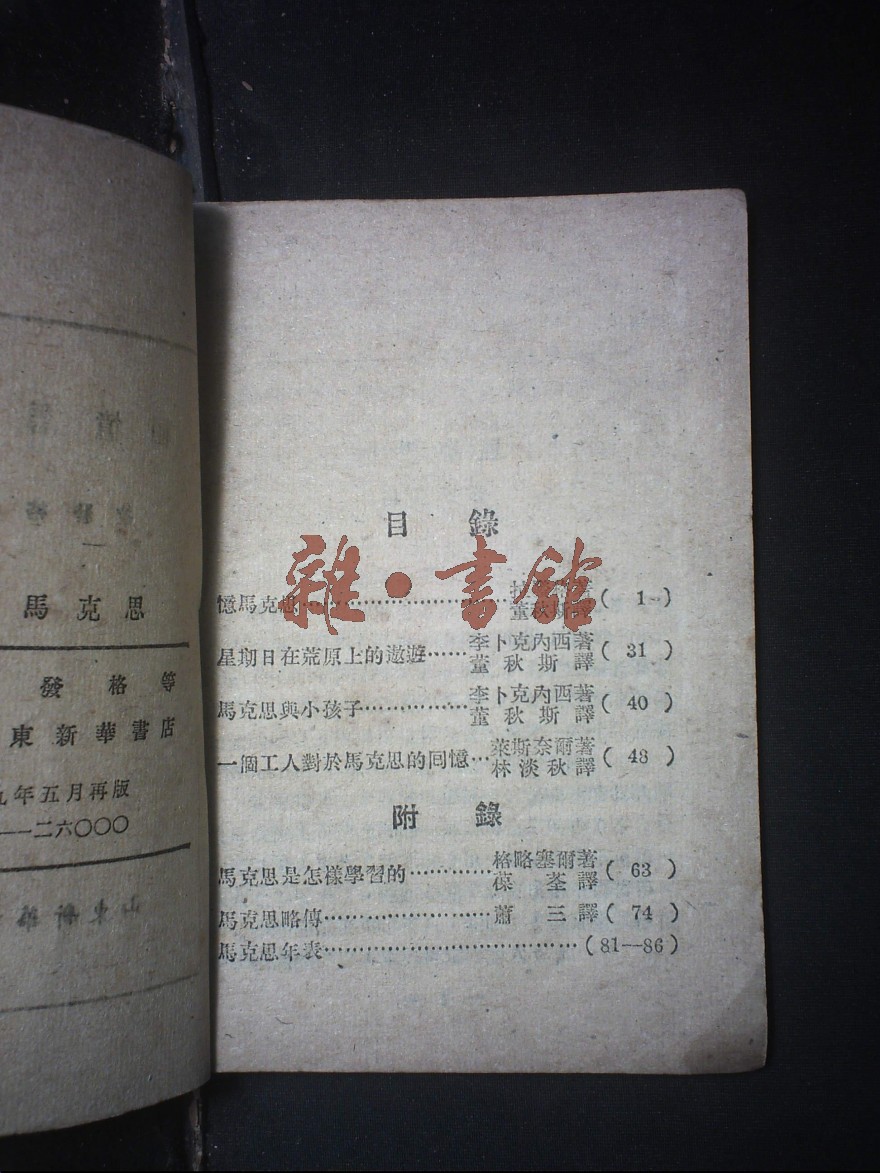 馬克思
發格等
東新華書店
九年五月再版
一二六〇〇〇
目錄
雜·書館
憶馬克思………………………著 董秋斯譯 ( 1 )
星期日在荒原上的遨遊……李卜克內西著 董秋斯譯 ( 31 )
馬克思與小孩子……………李卜克內西著 董秋斯譯 ( 40 )
一個工人對於馬克思的回憶…萊斯奈爾著 林淡秋譯 ( 48 )
附錄
馬克思是怎樣學習的…………格略塞爾著 葆荃譯 ( 63 )
馬克思略傳……………………蕭三譯 ( 74 )
馬克思年表………………………………(81—86)